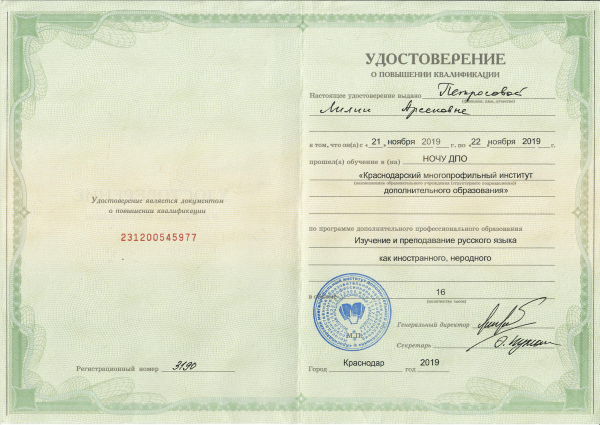 Удостоверение является документом
о повышении квалификации
231200545977
Регистрационный номер 3190
УДОСТОВЕРЕНИЕ
О ПОВЫШЕНИИ КВАЛИФИКАЦИИ
Настоящее удостоверение выдано Петросовой
(фамилия, имя, отчество)
Лилии Арсеновне
в том, что он(а) с 21 ноября 2019 г. по 22 ноября 2019 г.
прошел(а) обучение в (на) НОЧУ ДПО
«Краснодарский многопрофильный институт
(наименование образовательного учреждения (структурного подразделения)
дополнительного образования»
по программе дополнительного профессионального образования
Изучение и преподавание русского языка
как иностранного, неродного
в объеме 16
(количество часов)
М.П.
Генеральный директор
Секретарь
Город Краснодар год 2019